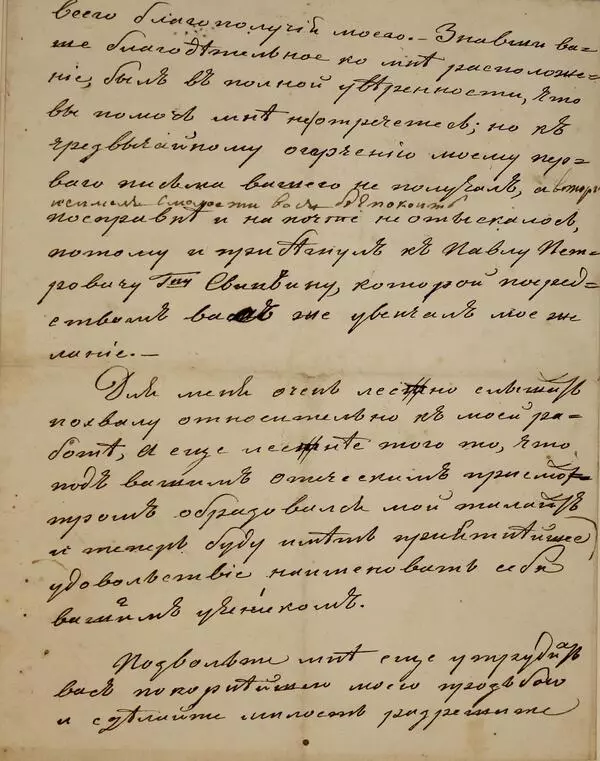 всего благополучія моего. – Знавши ва-
ше благодѣтельное ко мнѣ расположе-
ніе, былъ въ полной увѣренности, что
вы помочь мнѣ неотречетесь; но къ
чрезвычайному огорченію моему пер-
ваго письма вашего не получалъ, а
смѣлости васъ безпокоить
посправкѣ и на почтѣ не отыскалось,
потому и прибѣгнулъ къ Павлу Пет-
ровичу Свиньину, которой посред-
ствомъ васъ же увенчалъ мое же-
ланіе. –
Для меня очень лестно слышать
похвалу относительно къ моей ра-
ботѣ, а еще лестнѣе того то, что
подъ вашимъ отеческимъ присмо-
тромъ образовался мой талантъ
и теперь буду имѣть пріятнѣйшее
удовольствіе наименовать себя
вашимъ ученикомъ.
Подвольте мнѣ еще утрудить
васъ покорнѣйшею моею прозьбою
и сдѣлайте милость разрешите